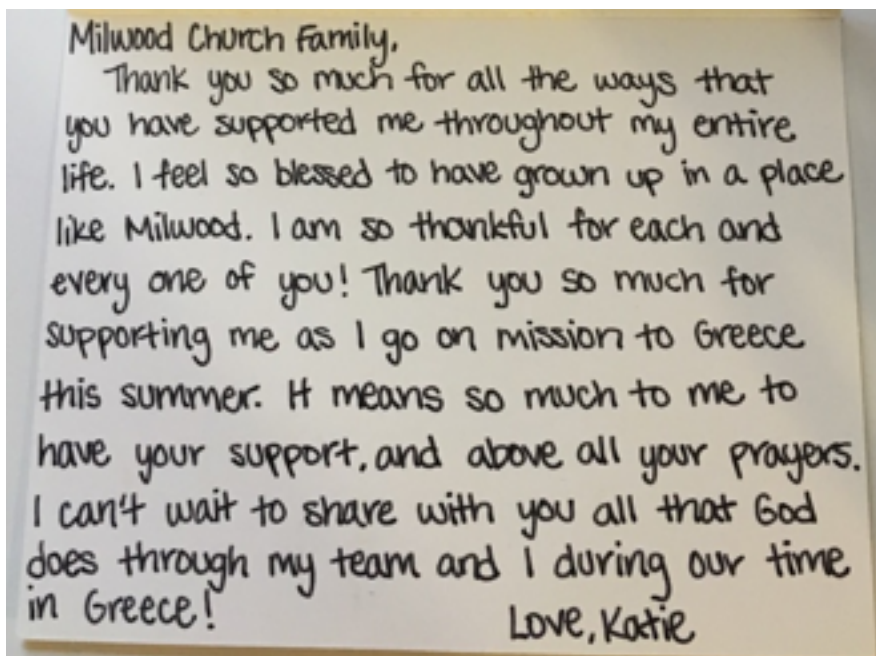 Milwood Church Family,
Thank you so much for all the ways that
you have supported me throughout my entire
life. I feel so blessed to have grown up in a place
like Milwood. I am so thankful for each and
every one of you! Thank you so much for
supporting me as I go on mission to Greece
this summer. It means so much to me to
have your support, and above all your prayers.
I can't wait to share with you all that God
does through my team and I during our time
in Greece!
Love, Katie